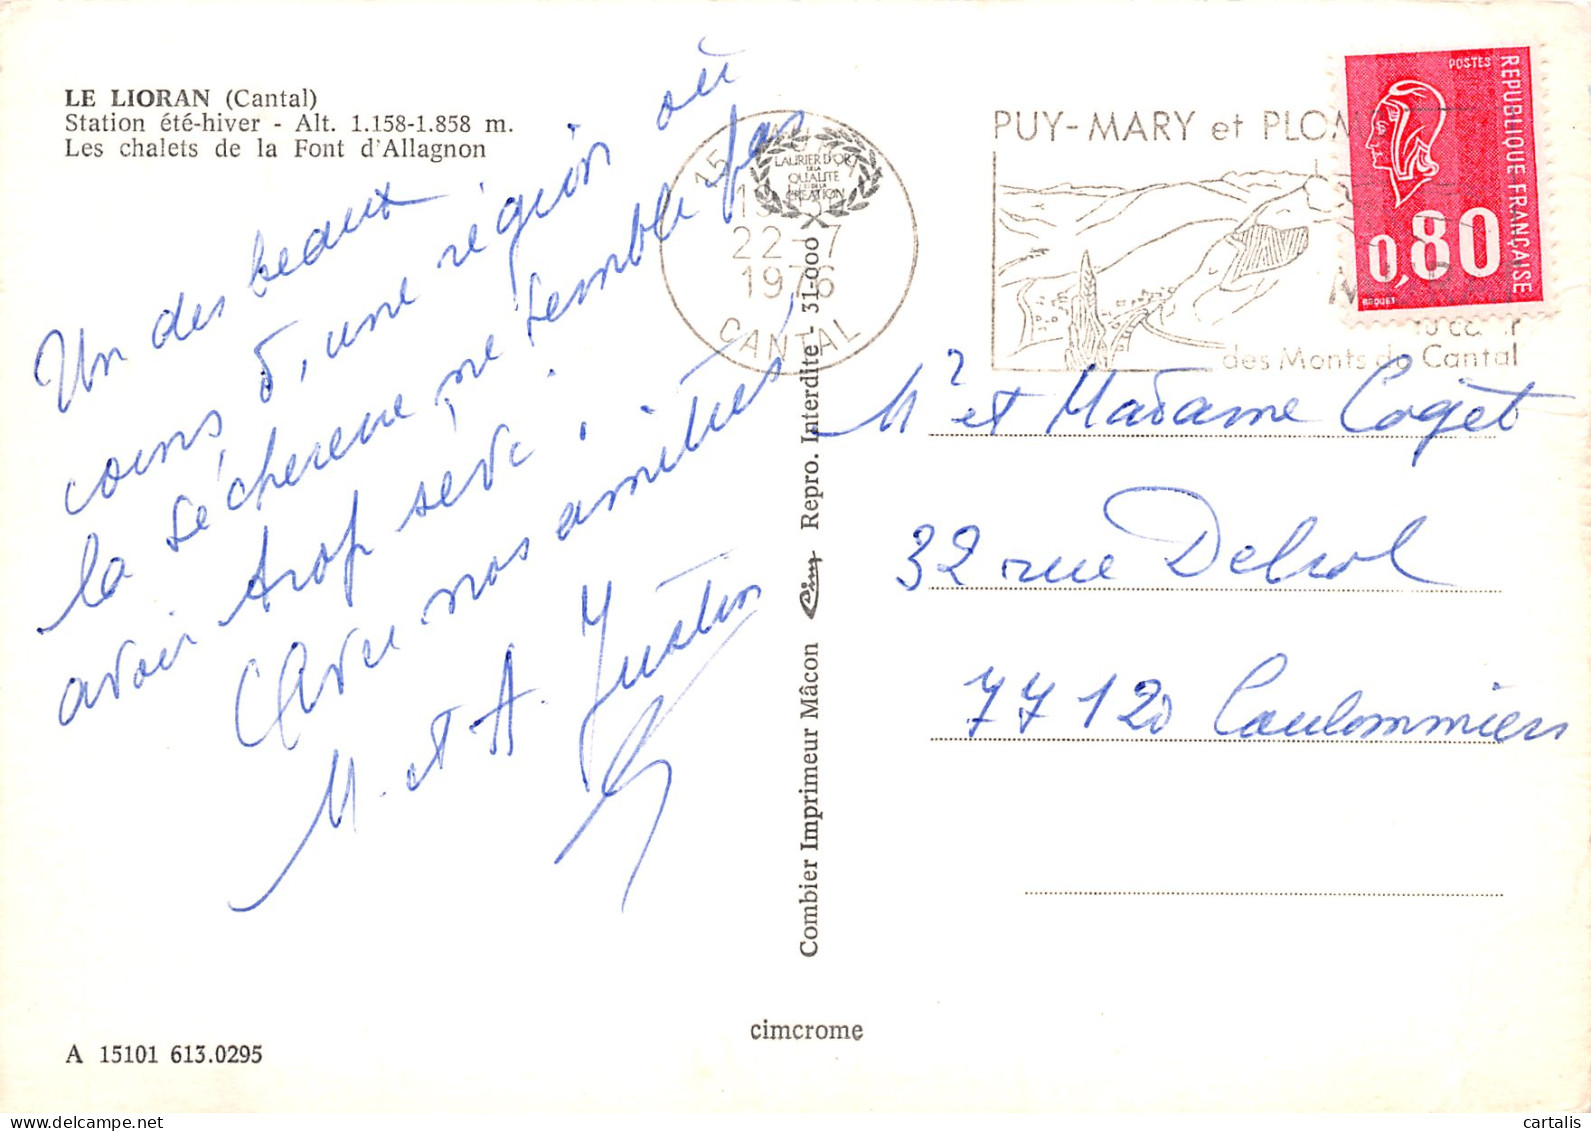 LE LIORAN (Cantal)
Station été-hiver - Alt. 1.158-1.858 m.
Les chalets de la Font d'Allagnon
Un des beaux
coins d'une région où
la sécheresse ne semble pas
avoir trop sévi.
Avec nos amitiés
M. et A. Justin
A 15101 613.0295
cimcrome
Combier Imprimeur Mâcon Cim Repro. Interdite - 31-000
LAURIER D'OR
DE LA
QUALITÉ
ET DE LA
CREATION
15
22-7
1976
CANTAL
PUY-MARY et PLOM
des Monts du Cantal
POSTES
REPUBLIQUE FRANÇAISE
0,80
BEQUET
Mr et Madame Coget
32 rue Delsol
77120 Coulommiers
cartalis